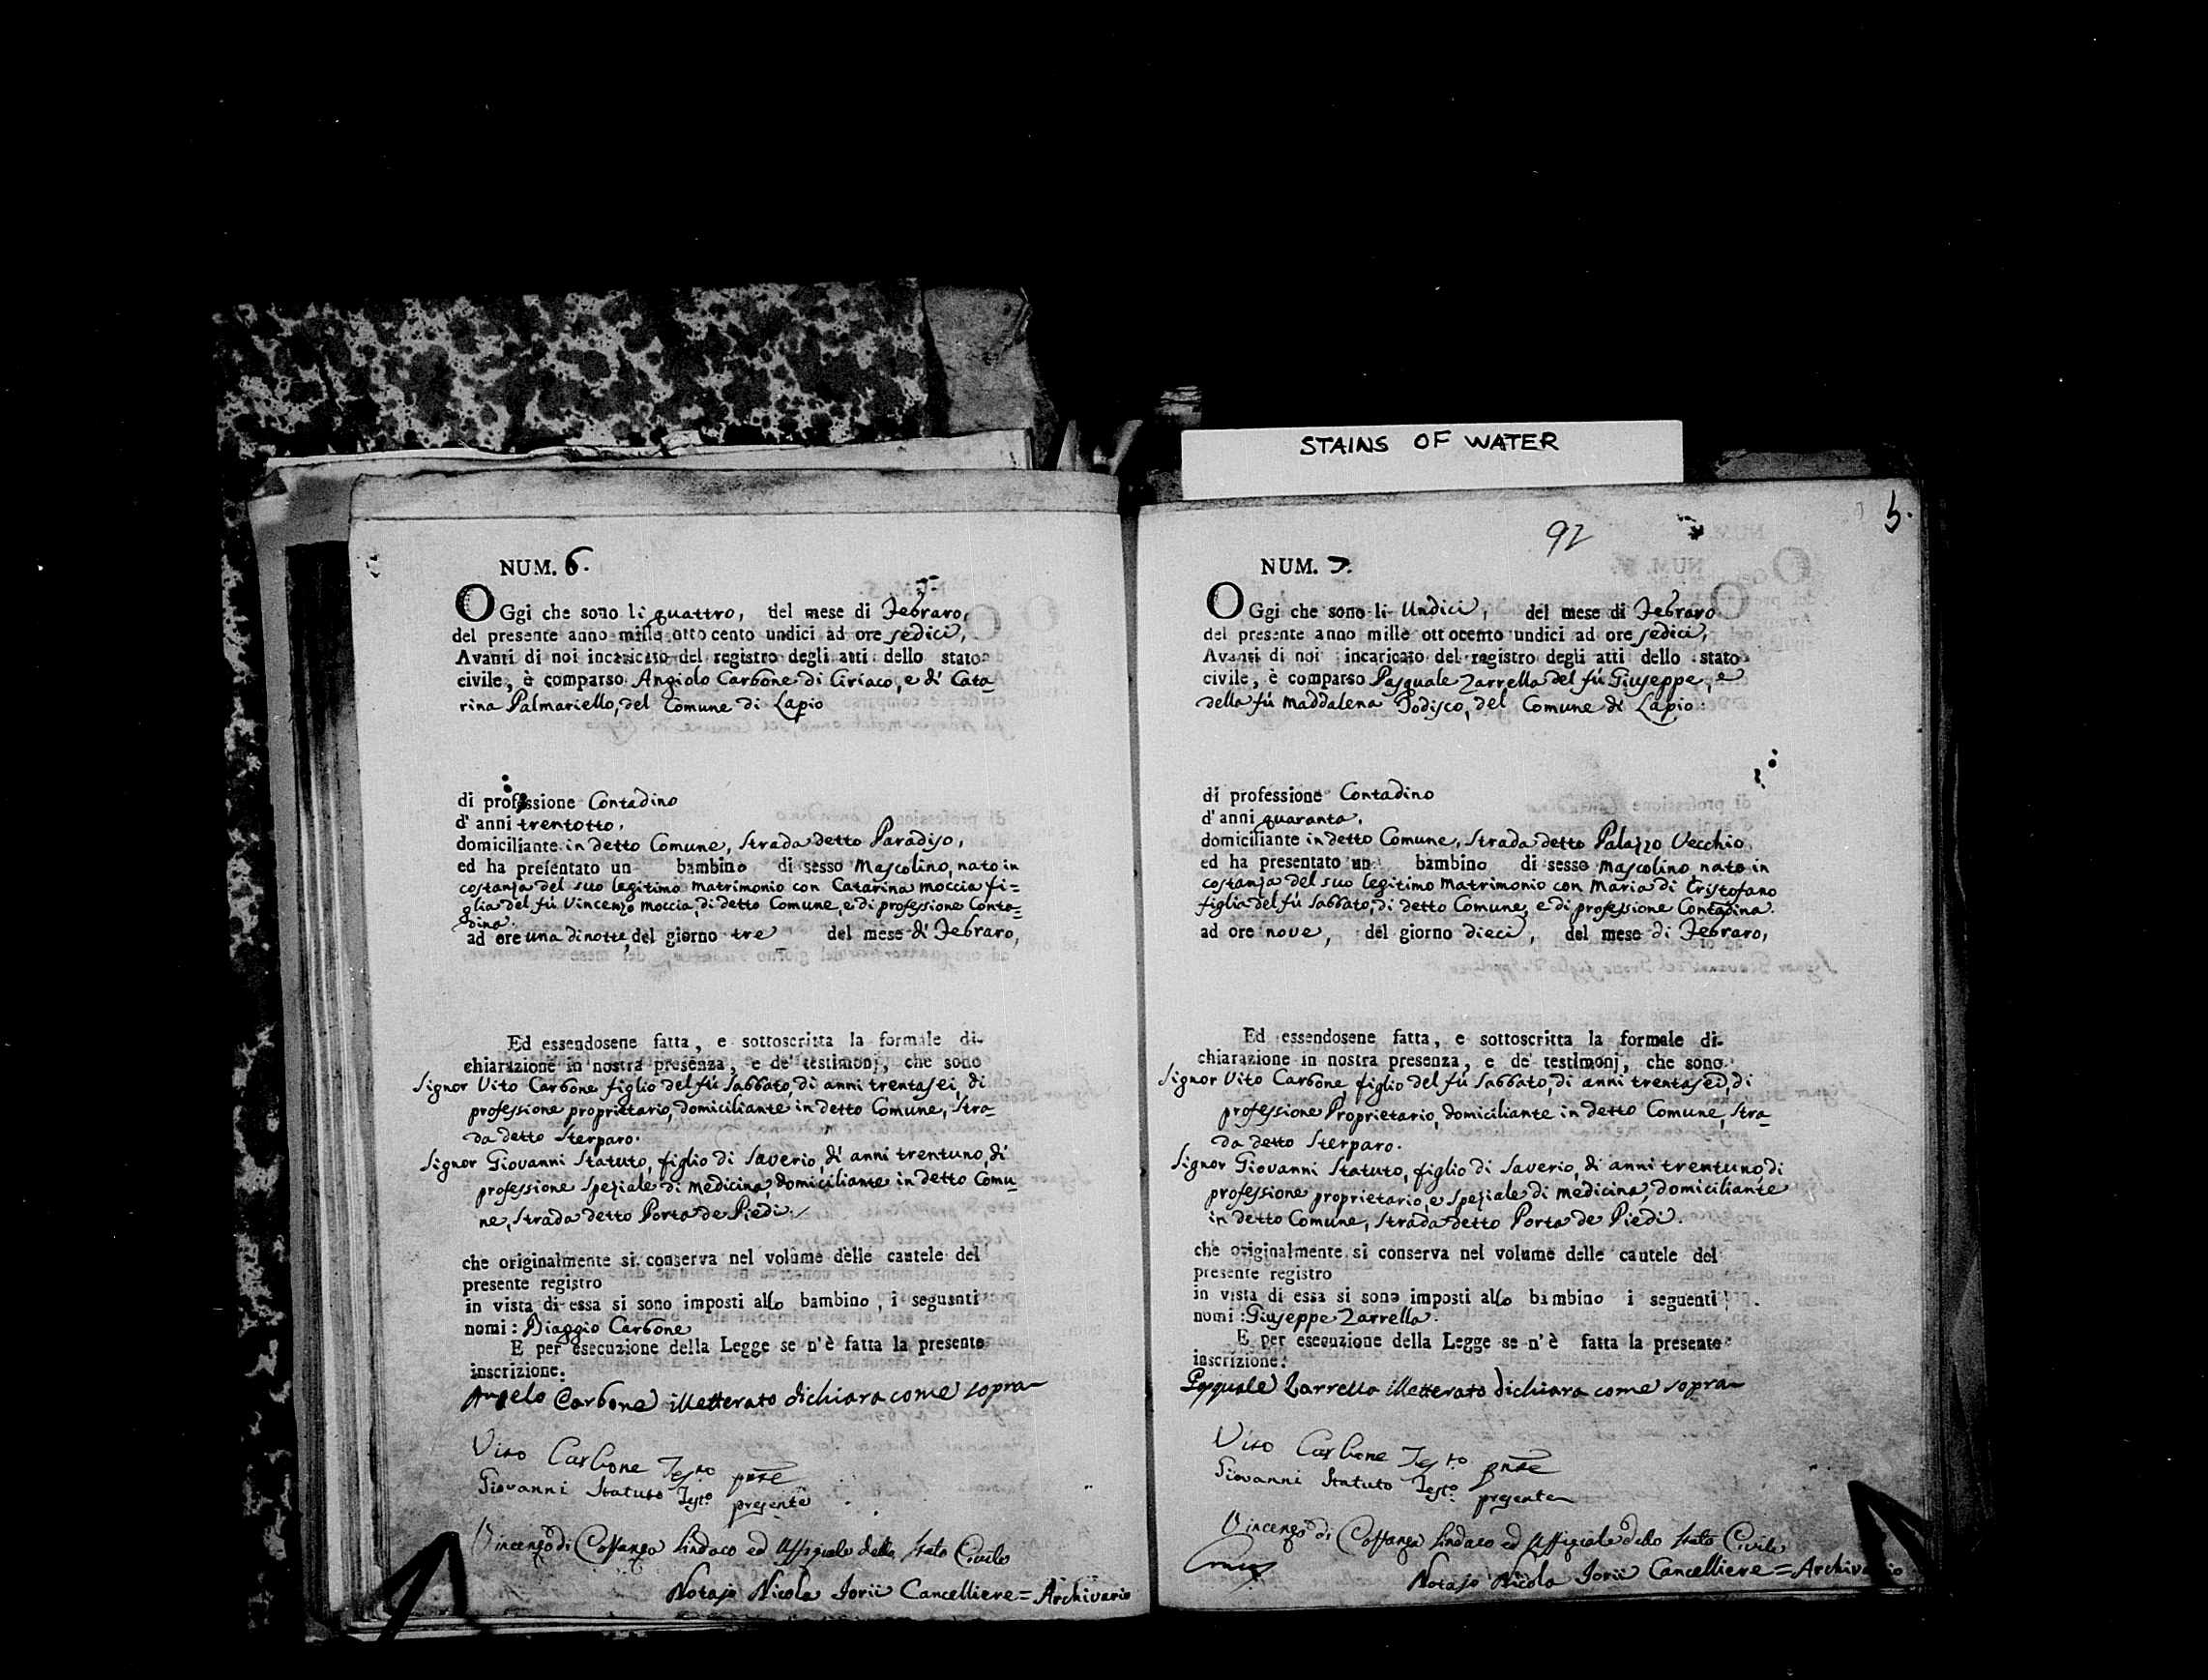 STAINS OF WATER
NUM. 6.
OGgi che sono li quattro, del mese di Febraro,
del presente anno mille otto cento undici ad ore sedici,
Avanti di noi incaricato del registro degli atti dello stato
civile, è comparso Angiolo Carbone di Ciriaco, e di Cata=
rina Palmariello, del Comune di Lapio
di professione Contadino
d' anni trentotto,
domiciliante in detto Comune, Strada detto Paradiso,
ed ha presentato un bambino di sesso Mascolino, nato in
costanza del suo legitimo matrimonio con Catarina Moccia fi=
glia del fù Vincenzo Moccia, di detto Comune, e di professione Conta=
dina.
ad ore una di notte, del giorno tre del mese di Febraro,
Ed essendosene fatta, e sottoscritta la formale di-
chiarazione in nostra presenza, e de' testimonj, che sono
Signor Vito Carbone figlio del fù Sabbato, di anni trentasei, di
professione proprietario, domiciliante in detto Comune, Stra=
da detto Sterparo.
Signor Giovanni Statuto, figlio di Saverio, di anni trentuno, di
professione Speziale di medicina, domiciliante in detto Comu=
ne, Strada detto Porta de Piedi.
che originalmente si conserva nel volume delle cautele del
presente registro
in vista di essa si sono imposti allo bambino, i seguenti
nomi: Biaggio Carbone
E per esecuzione della Legge se n'è fatta la presente
inscrizione.
Angelo Carbone illetterato dichiara come sopra
Vito Carbone Testo pnte
Giovanni Statuto Testo presente
Vincenzo di Costanzo Sindaco ed Uffiziale dello Stato Civile
Notajo Nicola Iorii Cancelliere = Archivario
92
5.
NUM. 7.
OGgi che sono li Undici, del mese di Febraro
del presente anno mille ottocento undici ad ore sedici,
Avanti di noi incaricato del registro degli atti dello stato
civile, è comparso Pasquale Zarrella del fù Giuseppe, e
della fù Maddalena Iodisco, del Comune di Lapio.
di professione Contadino
d' anni quaranta,
domiciliante in detto Comune, Strada detto Palazzo Vecchio
ed ha presentato un bambino di sesso mascolino nato in
costanza del suo legitimo matrimonio con Maria di Cristofano
figlia del fù Sabbato, di detto Comune, e di professione Contadina.
ad ore nove, del giorno dieci, del mese di Febraro,
Ed essendosene fatta, e sottoscritta la formale di-
chiarazione in nostra presenza, e de' testimonj, che sono
Signor Vito Carbone, figlio del fù Sabbato, di anni trentasei, di
professione Proprietario, domiciliante in detto Comune, Stra=
da detto Sterparo.
Signor Giovanni Statuto, figlio di Saverio, di anni trentuno di
professione proprietario, e Speziale di medicina, domiciliante
in detto Comune, Strada detto Porta de Piedi.
che originalmente si conserva nel volume delle cautele del
presente registro
in vista di essa si sono imposti allo bambino i seguenti
nomi: Giuseppe Zarrella.
E per esecuzione della Legge se n'è fatta la presente
inscrizione.
Pasquale Zarrella illetterato dichiara come sopra
Vito Carbone Testo pnte
Giovanni Statuto Testo presente
Vincenzo di Costanzo Sindaco ed Uffiziale dello Stato Civile
Notajo Nicola Iorii Cancelliere = Archivario